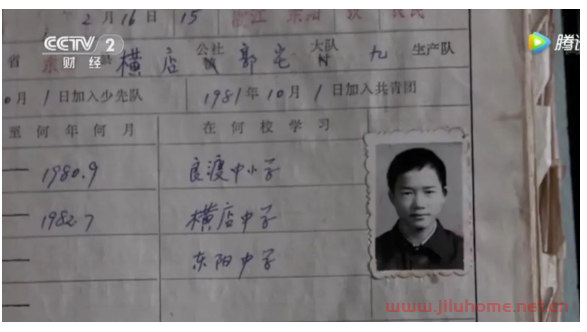 CCTV 2
财经
2月16日 15
省 横店 公社 郭宅 大队 九 生产队
0月1日加入少先队 1981年10月1日加入共青团
至何年何月 在何校学习
1980.9 良渡中小学
1982.7 横店中学
东阳中学
www.jiluhome.net.cn